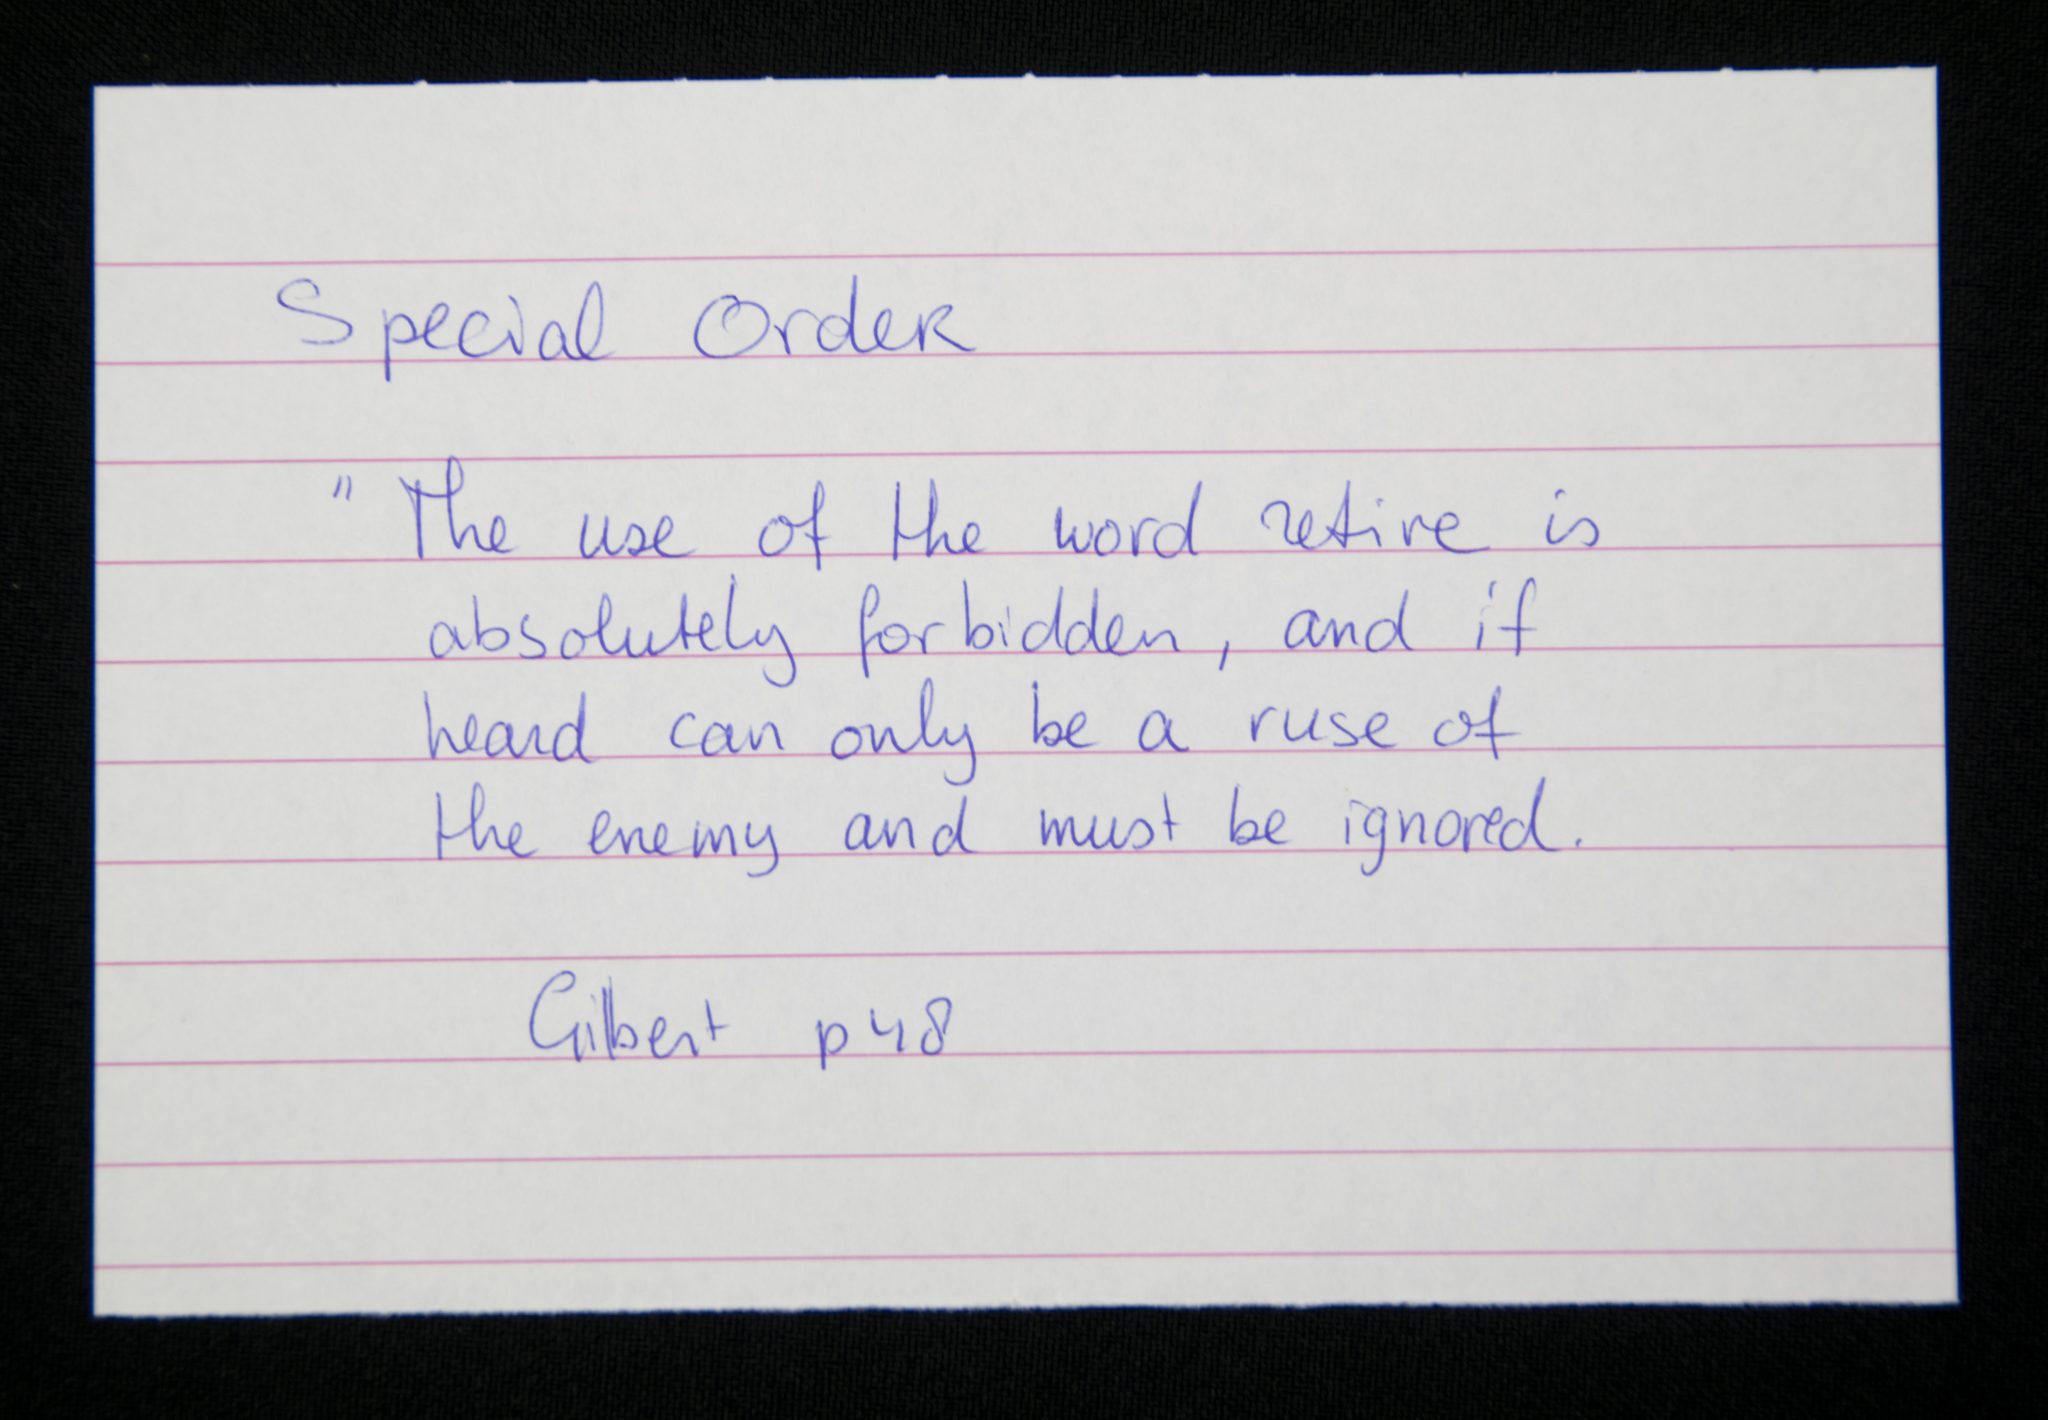 Special Order
"The use of the word retire is
absolutely forbidden, and if
heard can only be a ruse of
the enemy and must be ignored.
Gilbert p48